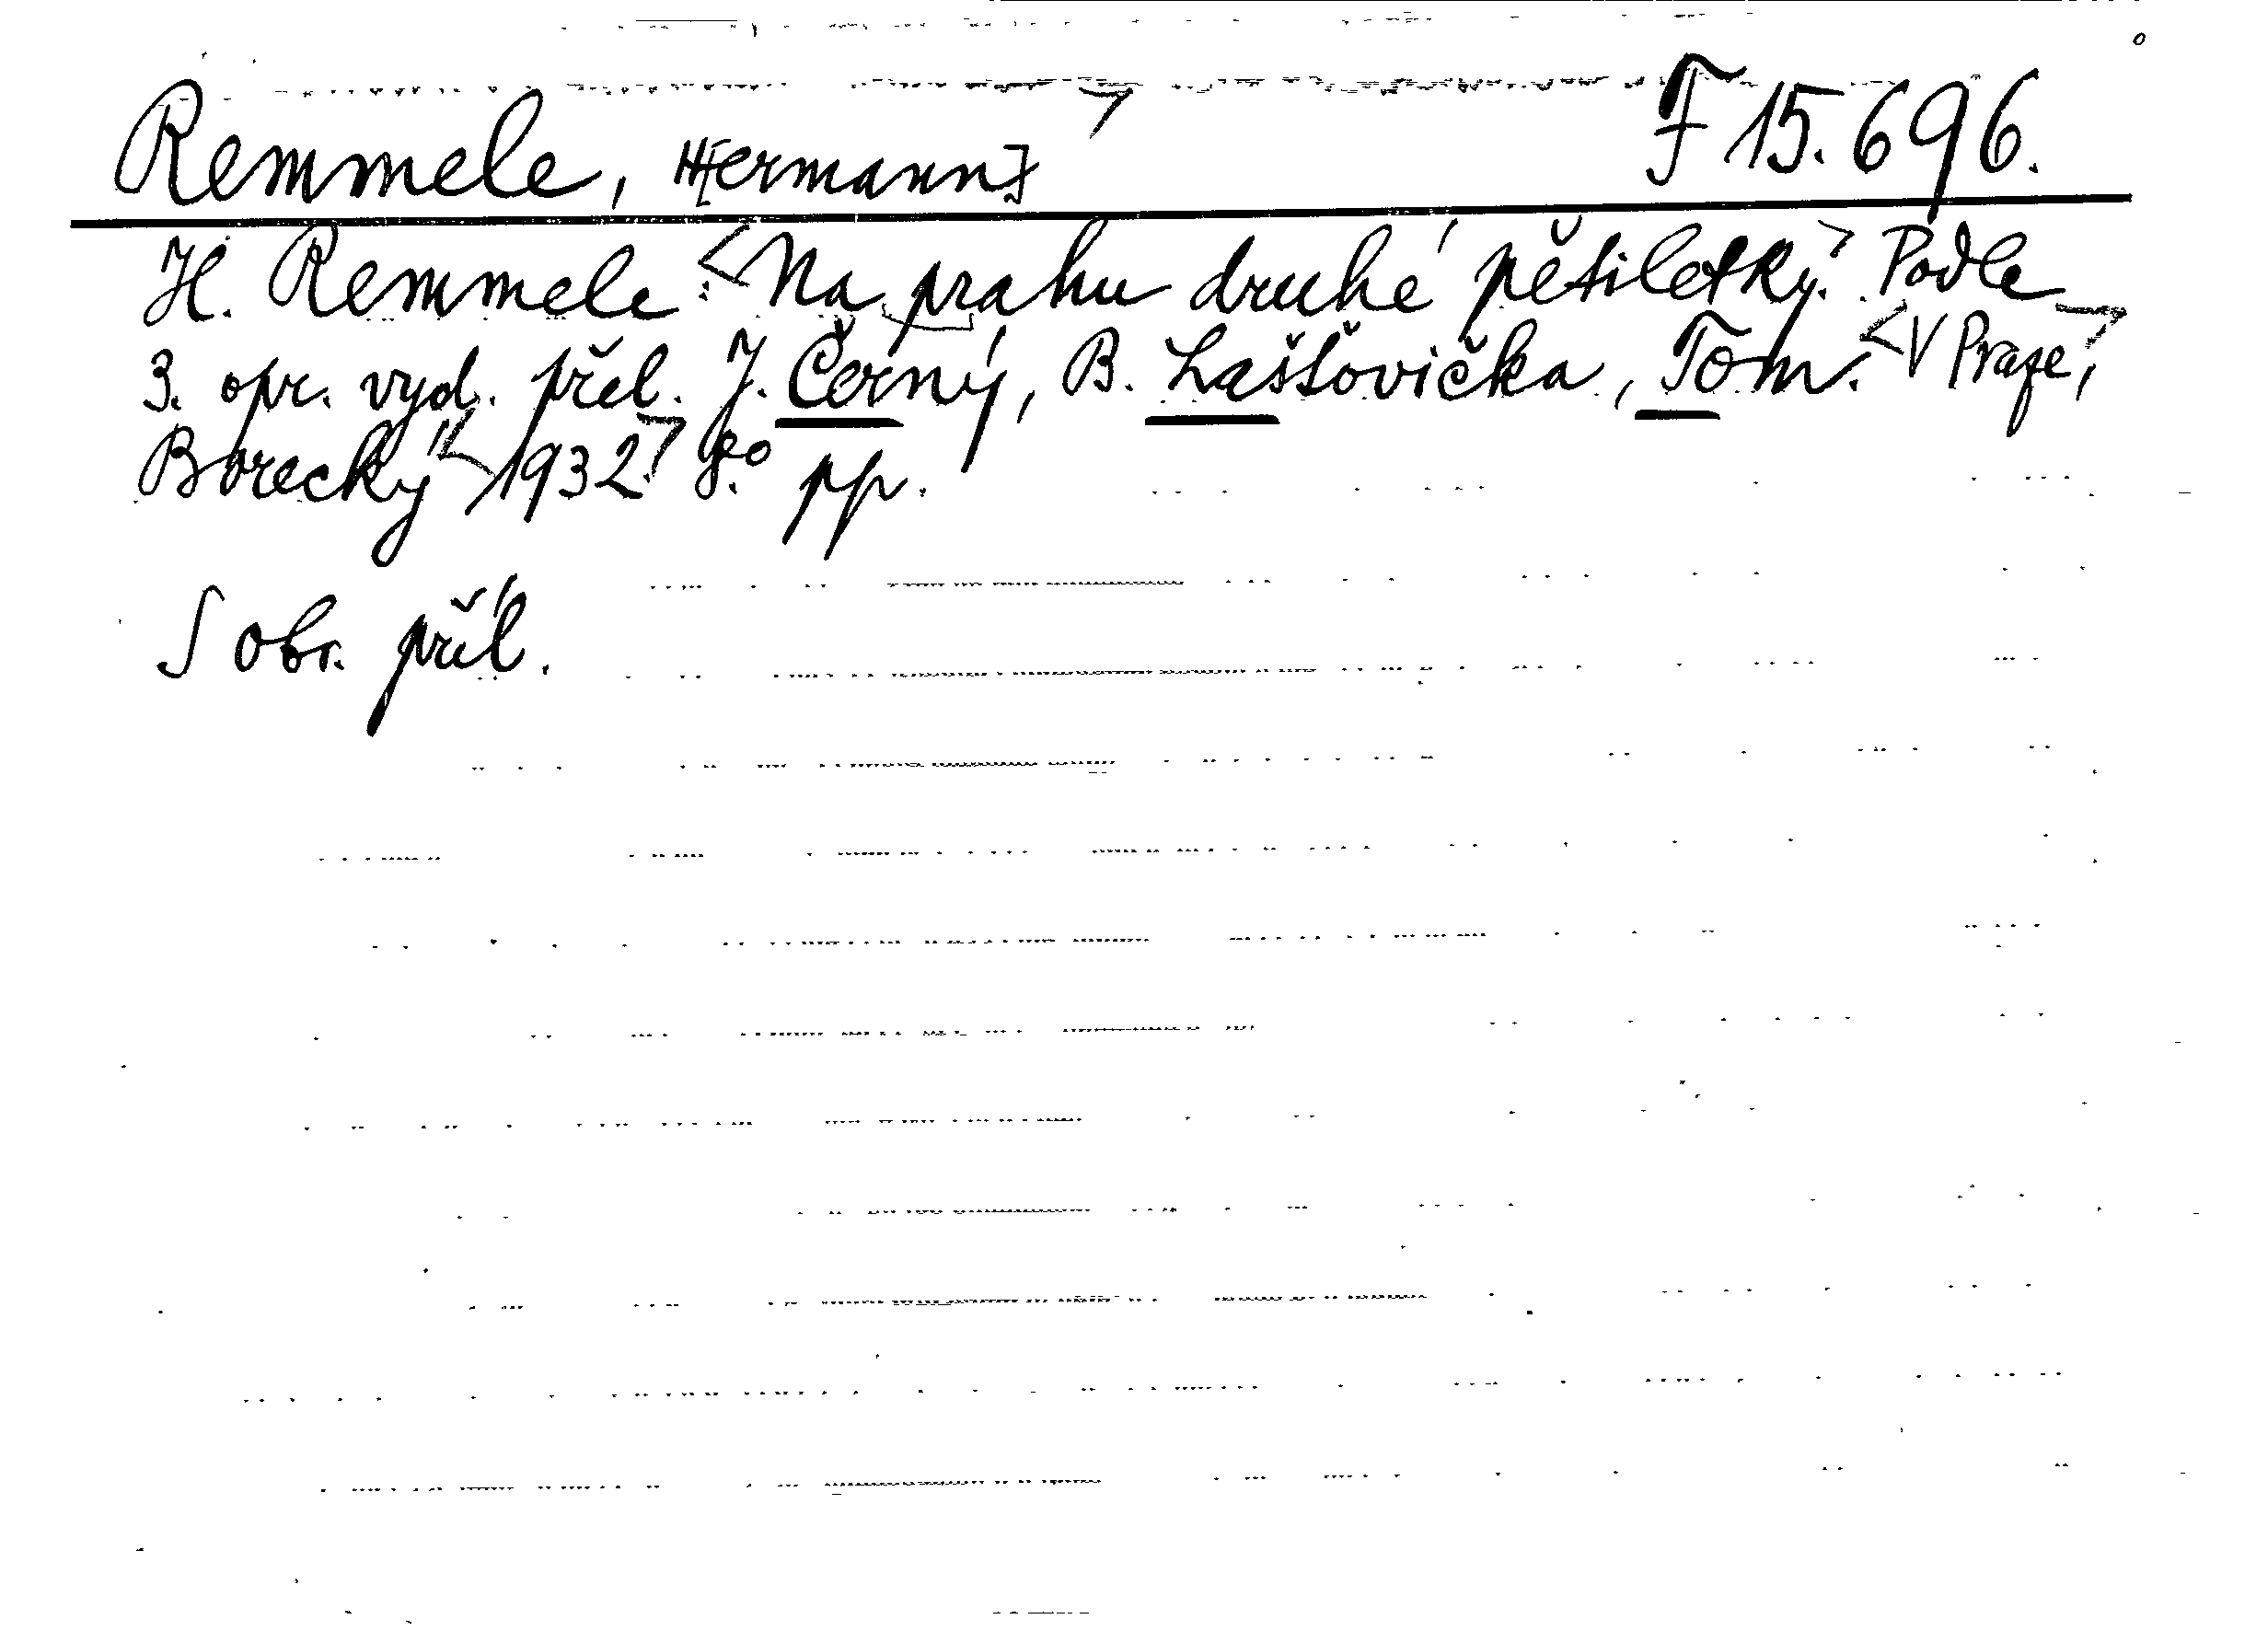 Remmele, H[ermann] F 15.696.
H. Remmele: Na prahu druhé pětiletky. Podle
3. opr. vyd. přel. J. Černý, B. Laštovička, Tom. V Praze,
Borecký 1932. 8° pp.
S obr. příl.